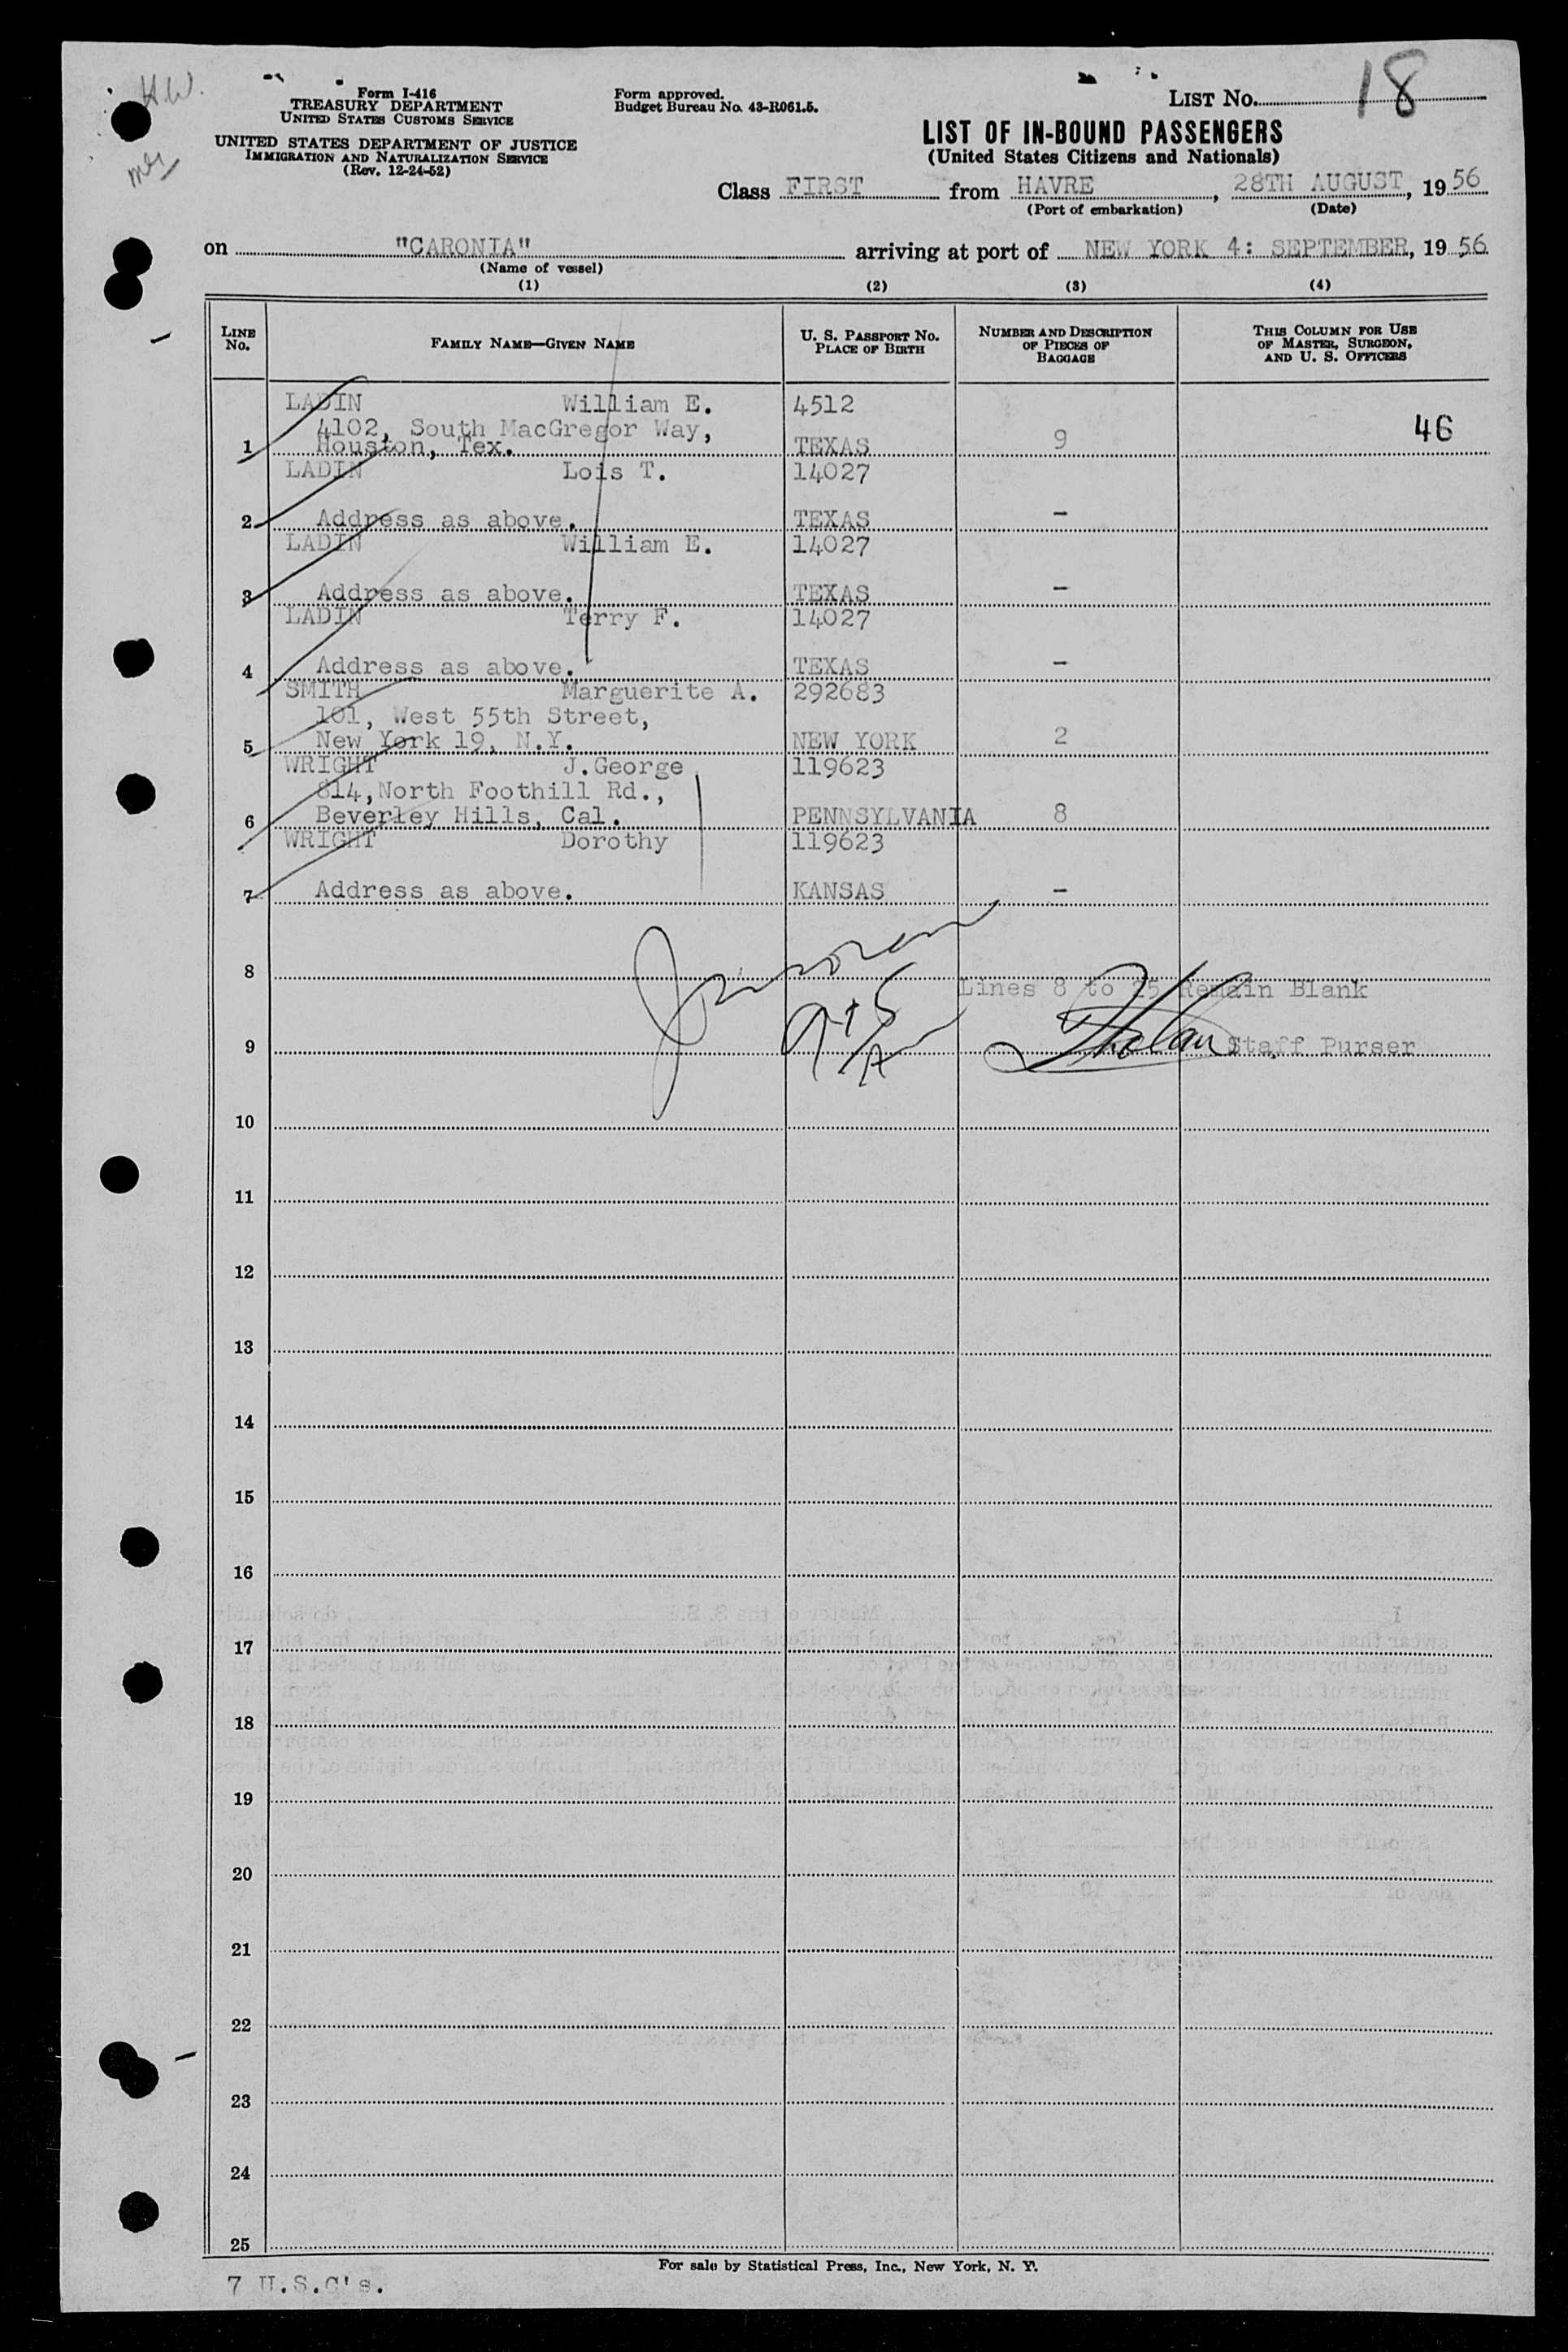 H.W.
Form I-416
TREASURY DEPARTMENT
UNITED STATES CUSTOMS SERVICE
UNITED STATES DEPARTMENT OF JUSTICE
IMMIGRATION AND NATURALIZATION SERVICE
(Rev. 12-24-52)
Form approved.
Budget Bureau No. 43-R061.5.
LIST No. 18
LIST OF IN-BOUND PASSENGERS
(United States Citizens and Nationals)
Class FIRST from HAVRE, 28TH AUGUST, 1956
(Port of embarkation) (Date)
on "CARONIA" arriving at port of NEW YORK 4: SEPTEMBER, 1956
(Name of vessel)
(1) (2) (3) (4)
LINE No. FAMILY NAME—GIVEN NAME U. S. PASSPORT NO. PLACE OF BIRTH NUMBER AND DESCRIPTION OF PIECES OF BAGGAGE THIS COLUMN FOR USE OF MASTER, SURGEON, AND U. S. OFFICERS
LADIN William E. 4512
4102, South MacGregor Way, 46
1 Houston, Tex. TEXAS 9
LADIN Lois T. 14027
2 Address as above. TEXAS -
LADIN William E. 14027
3 Address as above. TEXAS -
LADIN Terry F. 14027
4 Address as above. TEXAS -
SMITH Marguerite A. 292683
101, West 55th Street,
5 New York 19, N.Y. NEW YORK 2
WRIGHT J.George 119623
814,North Foothill Rd.,
6 Beverley Hills, Cal. PENNSYLVANIA 8
WRIGHT Dorothy 119623
7 Address as above. KANSAS -
8
Lines 8 to 25 Remain Blank
9 Staff Purser
10
11
12
13
14
15
16
17
18
19
20
21
22
23
24
25
For sale by Statistical Press, Inc., New York, N. Y.
7 U.S.C's.